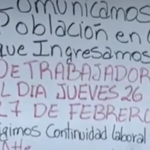 omunicamos
oblación en
que Ingresamos
DE TRABAJADOR
L DIA JUEVES 26
27 DE FEBRERO
igimos Continuidad laboral